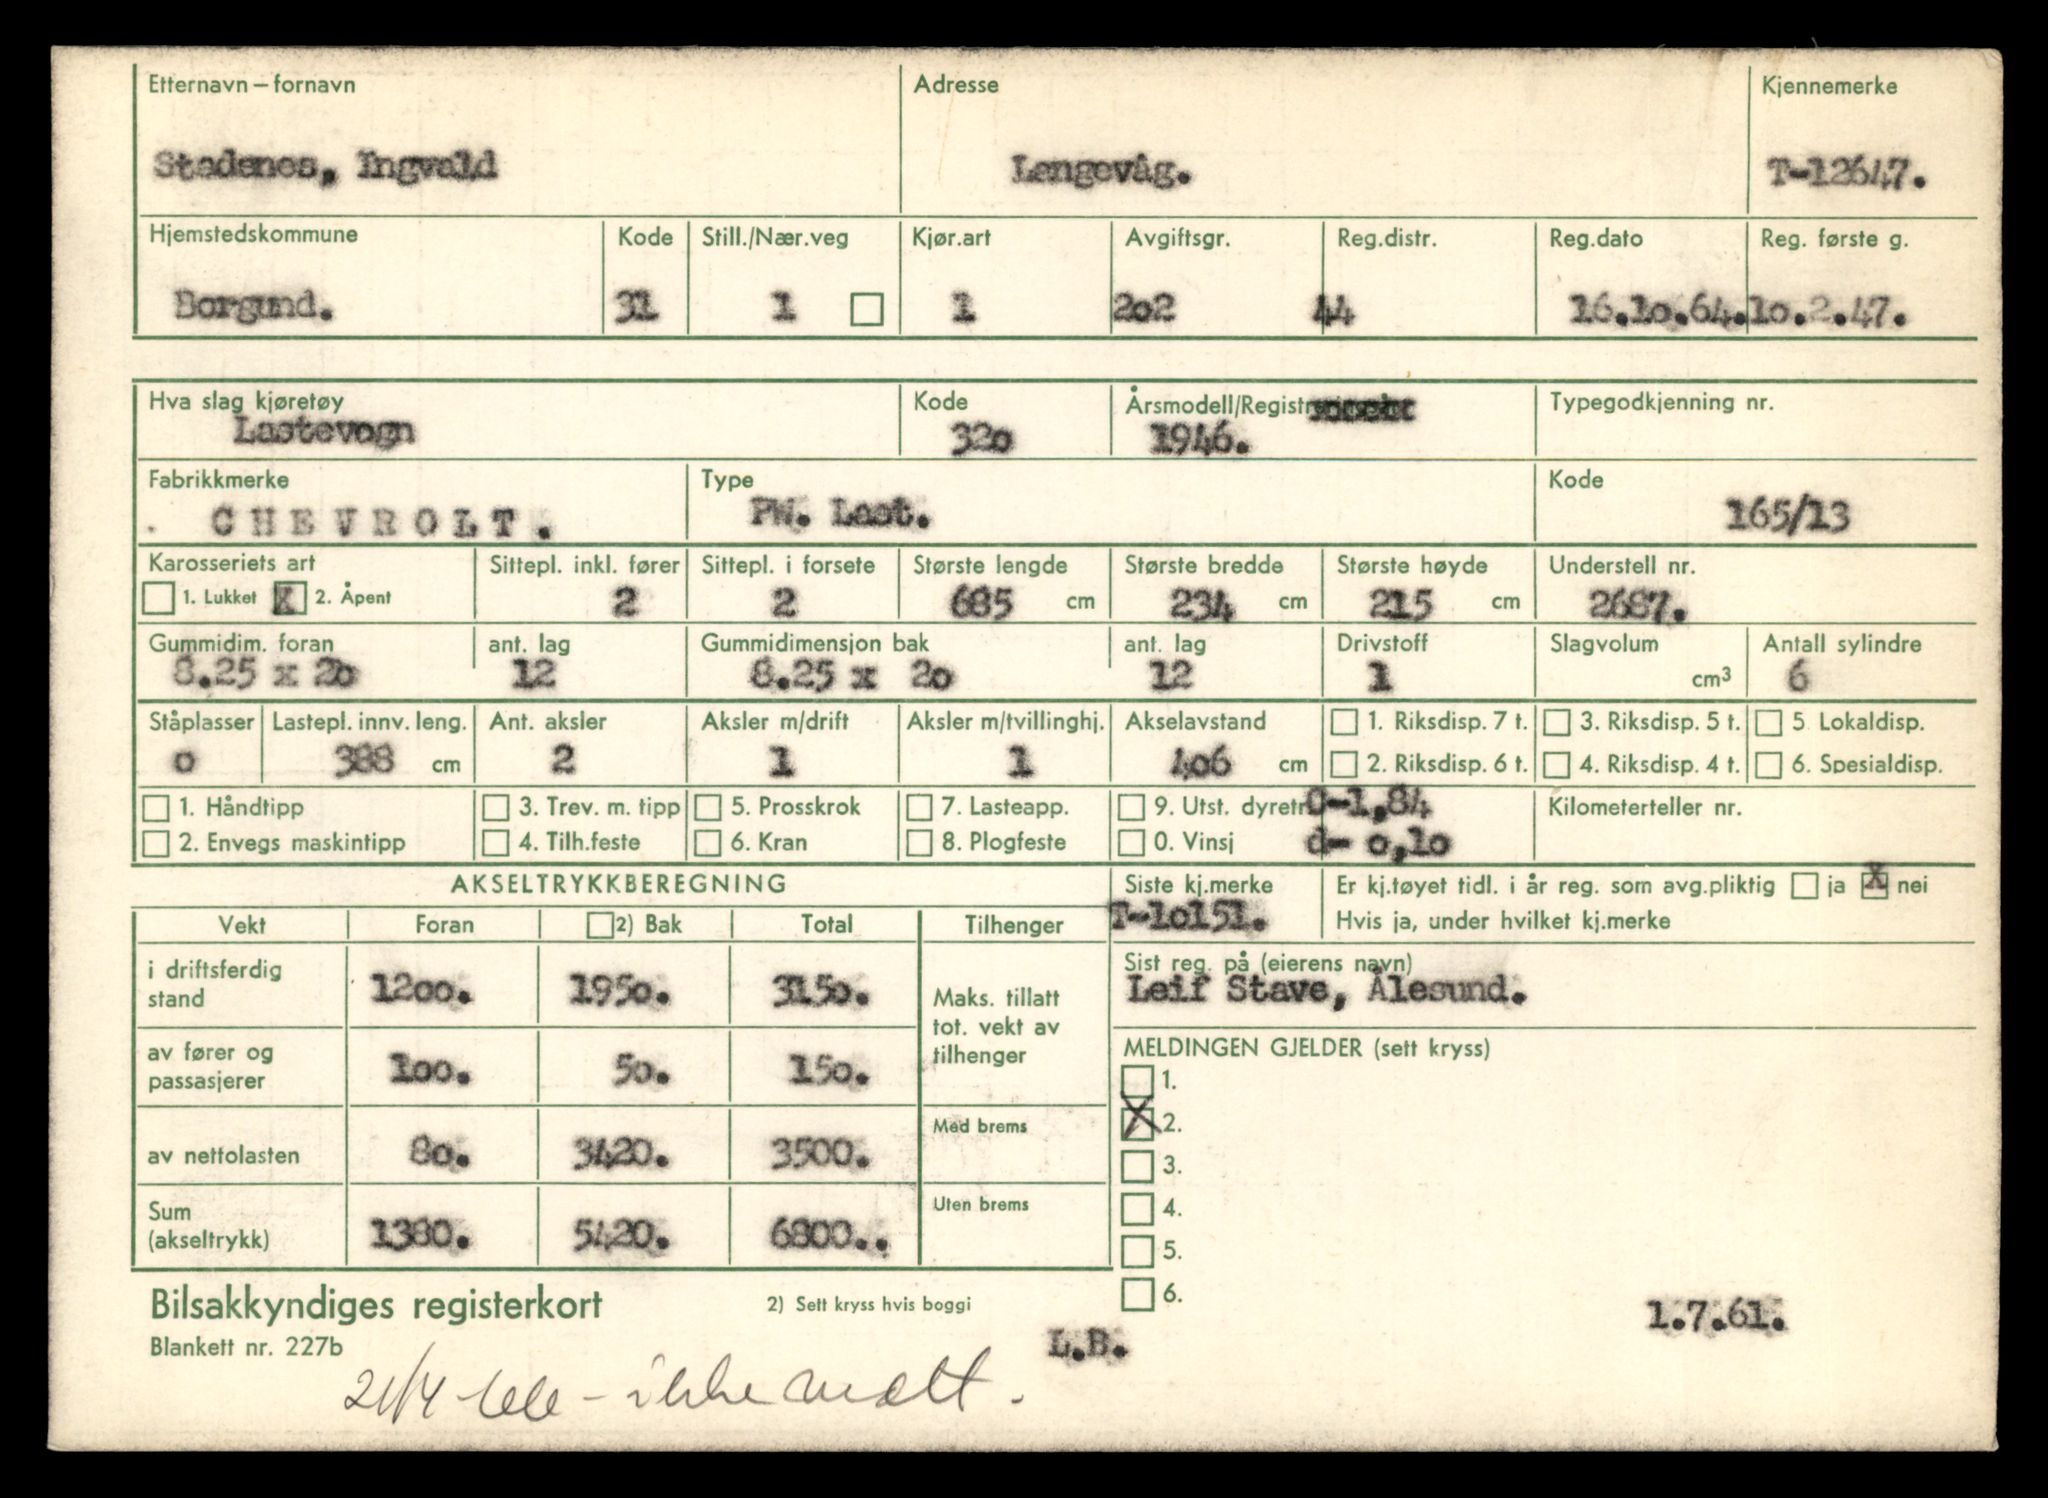 Etternavn – fornavn Adresse Kjennemerke
Stadsnes, Ingvald Langevåg. T-12647.
Hjemstedskommune Kode Still./Nær.veg Kjør.art Avgiftsgr. Reg.distr. Reg.dato Reg. første g.
Borgund. 31 1 1 2o2 44 16.1o.64. 1o.2.47.
Hva slag kjøretøy Kode Årsmodell/Registr Typegodkjenning nr.
Lastevogn 32o 1946.
Fabrikkmerke Type Kode
CHEVROLT. PW. Last. 165/13
Karosseriets art Sittepl. inkl. fører Sittepl. i forsete Største lengde Største bredde Største høyde Understell nr.
1. Lukket X 2. Åpent 2 2 685 cm 234 cm 215 cm 2687.
Gummidim. foran ant. lag Gummidimensjon bak ant. lag Drivstoff Slagvolum Antall sylindre
8.25 x 2o 12 8.25 x 2o 12 1 cm3 6
Ståplasser Lastepl. innv. leng. Ant. aksler Aksler m/drift Aksler m/tvillinghj. Akselavstand 1. Riksdisp. 7 t. 3. Riksdisp. 5 t. 5. Lokaldisp.
o 388 cm 2 1 1 4o6 cm 2. Riksdisp. 6 t. 4. Riksdisp. 4 t. 6. Spesialdisp.
1. Håndtipp 3. Trev. m. tipp 5. Prosskrok 7. Lasteapp. 9. Utst. dyretr C-1,84 Kilometerteller nr.
2. Envegs maskintipp 4. Tilh.feste 6. Kran 8. Plogfeste 0. Vinsj d- o,1o
AKSELTRYKKBEREGNING Siste kj.merke Er kj.tøyet tidl. i år reg. som avg.pliktig ja X nei
Vekt Foran 2) Bak Total Tilhenger T-1o151. Hvis ja, under hvilket kj.merke
i driftsferdig stand 12oo. 195o. 315o. Maks. tillatt tot. vekt av tilhenger
Sist reg. på (eierens navn)
Leif Stave, Ålesund.
av fører og passasjerer 1oo. 5o. 15o.
MELDINGEN GJELDER (sett kryss)
1.
X 2.
av nettolasten 8o. 3420. 3500. Med brems
3.
4.
Sum (akseltrykk) 1380. 5420. 6800.. Uten brems
5.
6.
Bilsakkyndiges registerkort 2) Sett kryss hvis boggi 1.7.61.
Blankett nr. 227b L.B.
21/4-66 - ikke møtt.